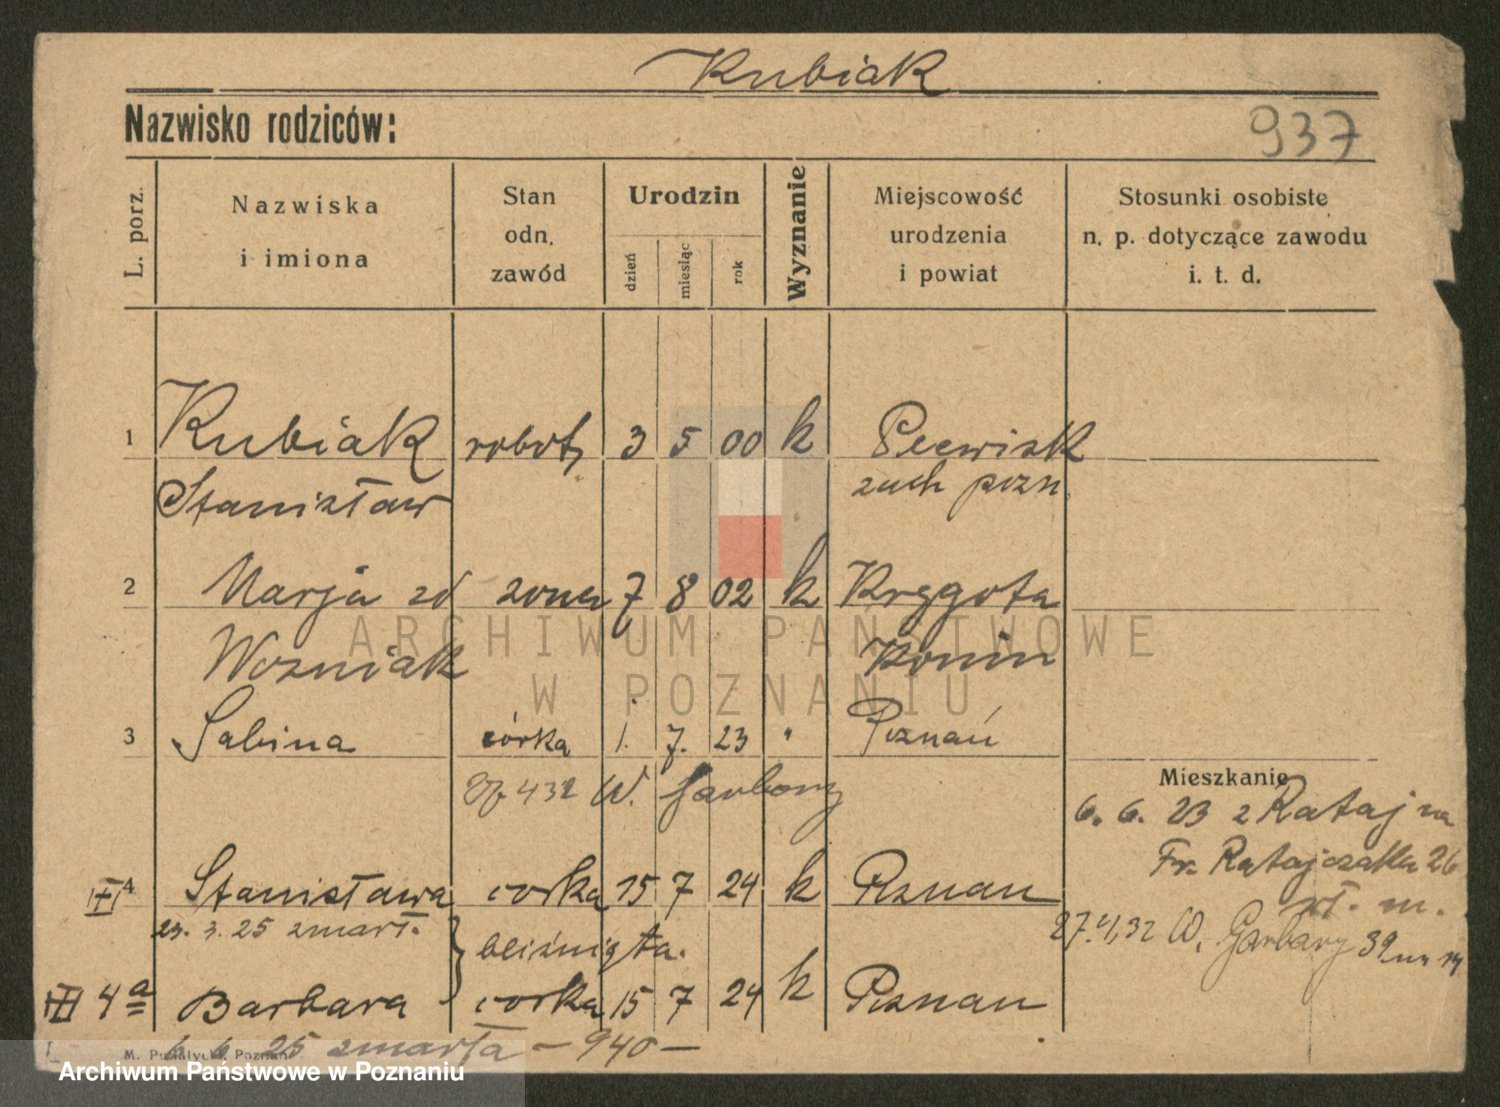 Kubiak
Nazwisko rodziców:
937
L. porz.
Nazwiska
i imiona
Stan
odn.
zawód
Urodzin
dzień
miesiąc
rok
Wyznanie
Miejscowość
urodzenia
i powiat
Stosunki osobiste
n. p. dotyczące zawodu
i. t. d.
1 Kubiak robotn 3 5 00 k
Stanisław zach pozn
2 Marja zd zona 7 8 02 k Kręgota
Wozniak Konin
3 Sabina córka 1. 7. 23 " Poznań
432 W. Garbary
Mieszkanie
6. 6. 23 z Rataj na
Fr. Ratajczaka 26
m.
27.4.32 W. Garbary 39
4 Stanisława corka 15 7 24 k Poznan
23. 3. 25 zmarł.
bliźnięta.
4a Barbara corka 15 7 24 k Poznan
6. 6. 25 zmarła – 940 –
ARCHIWUM PAŃSTWOWE
W POZNANIU
Archiwum Państwowe w Poznaniu